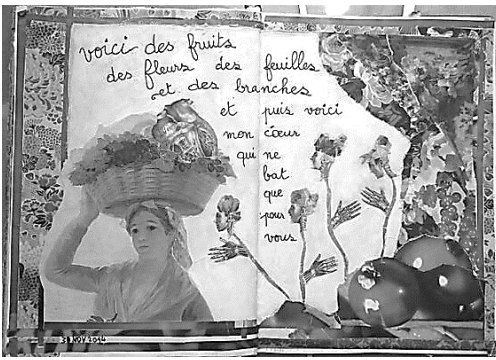 voici des fruits
des fleurs des feuilles
et des branches
et puis voici
mon cœur
qui ne
bat
que
pour
vous
30 NOV 2014